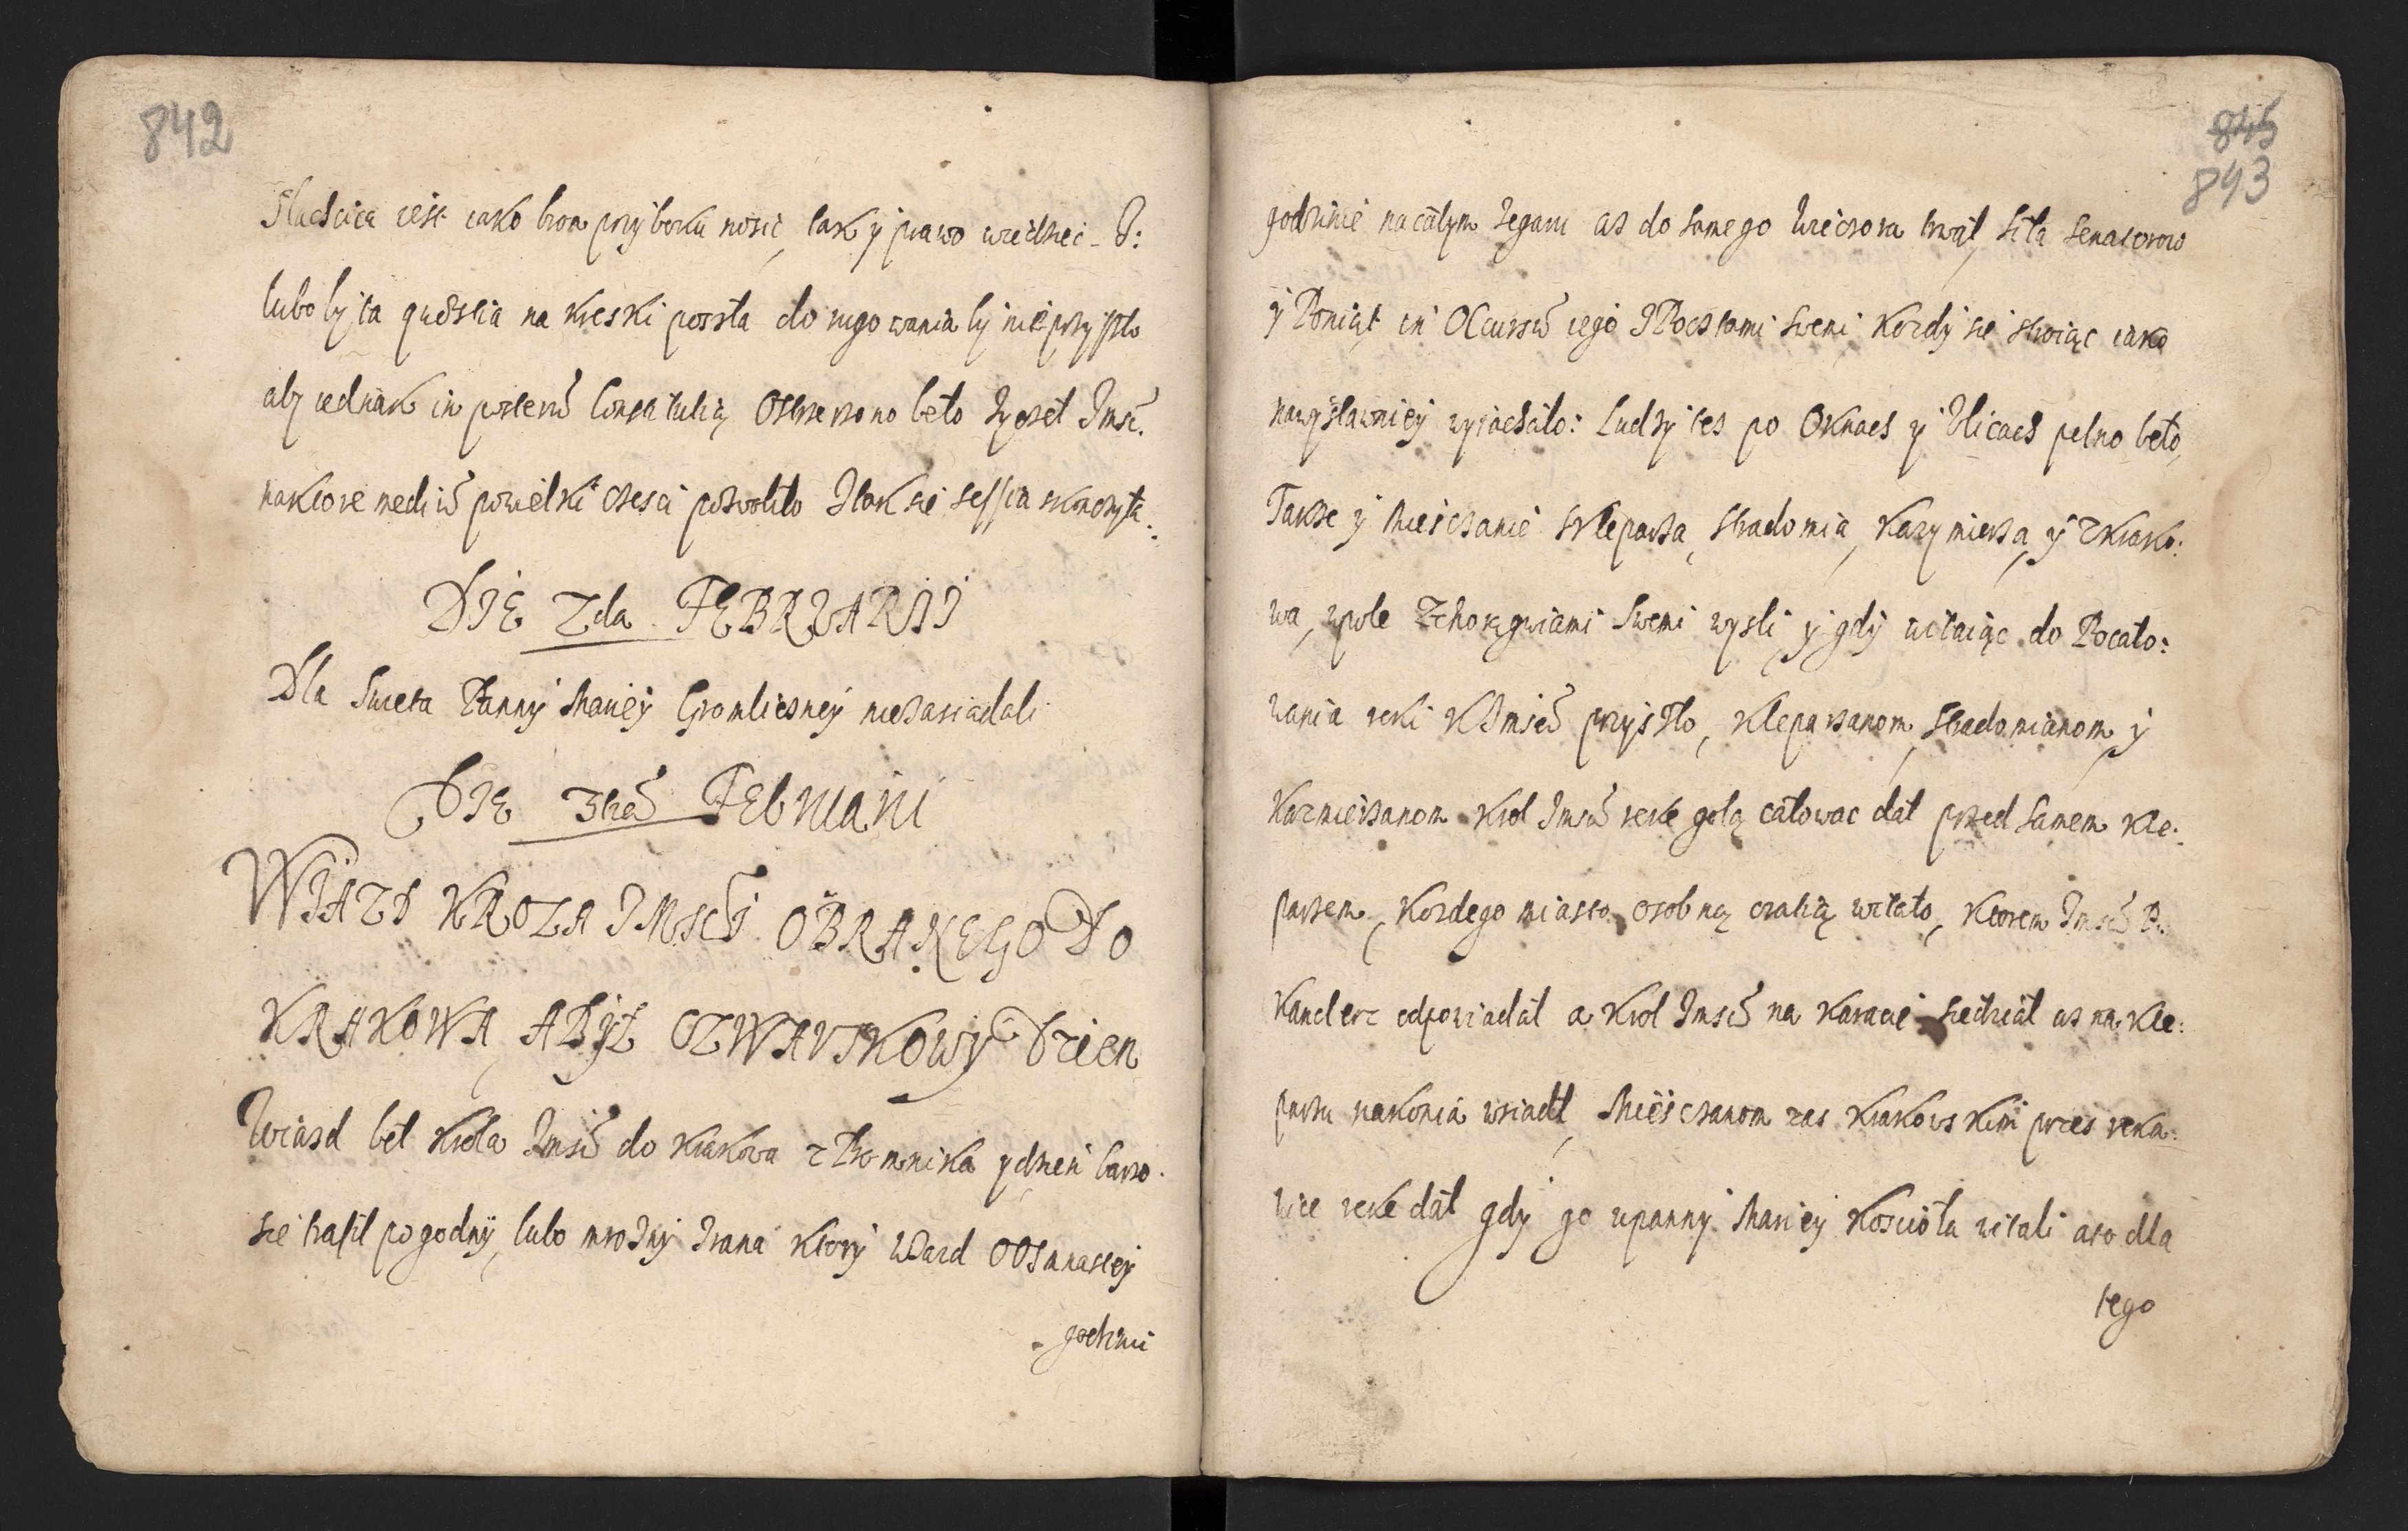 842
Slachcica iest iako bron przy boku nosic, tak y prawo wiedziec. I:
luboby ta questia na kreski poszła do rugowania by nie przyszło
aby iednak in posterum Constitutią ostrzezono beło zyczeł Jmsc.
naktore medium powielki czesci pozwoliło I tak sie sessia skonczyła:
DIE 2da FEBRUARII
Dla Swieta Panny Mariey Gromliczney niezasiadali
DIE 3tia FEbruarii
WIAZD KROLA IMSCI OBRANEGO DO
KRAKOWA, A BYŁ CZWARTKOWY Dzien
Wiazd beł krola Jmsci do krakowa z Promnika y dzien barzo
sie trafił pogodny, lubo mrozny zrana ktory Wiazd o osmnastey
godzini
845
843
godzinie na całym zegaru az do samego wieczora trwał, siła senatorow
y Poniąt in Occursum iego I Pocztami swemi kozdy sie stroiąc iako
naywsławniey wyiachało: Ludzy tes po Oknach y Ulicach pełno beło,
Takze y Miesczanie s kleparza, Stradomia, Kazymierza, y z krako:
wa, w pole z chorągwiami swemi wysli, y gdy witaiąc do Pocało:
wania reki K Jmści przyszło, kleparzanom, stradomianom, y
Kazmierzanom krol Jmsc reke gołą całowac dał przed samem kle:
parzem, kozdego miasta osobną oratią witało, ktorem Jmsc P.
Kanclerz odpowiadał a krol Jmsc na karacie siedział as na kle:
parzu nakonia wsiadł, Miesczanom zas krakowskim przes reka:
wice reke dał gdy go u panny Mariey kosciola witali a to dla
tego